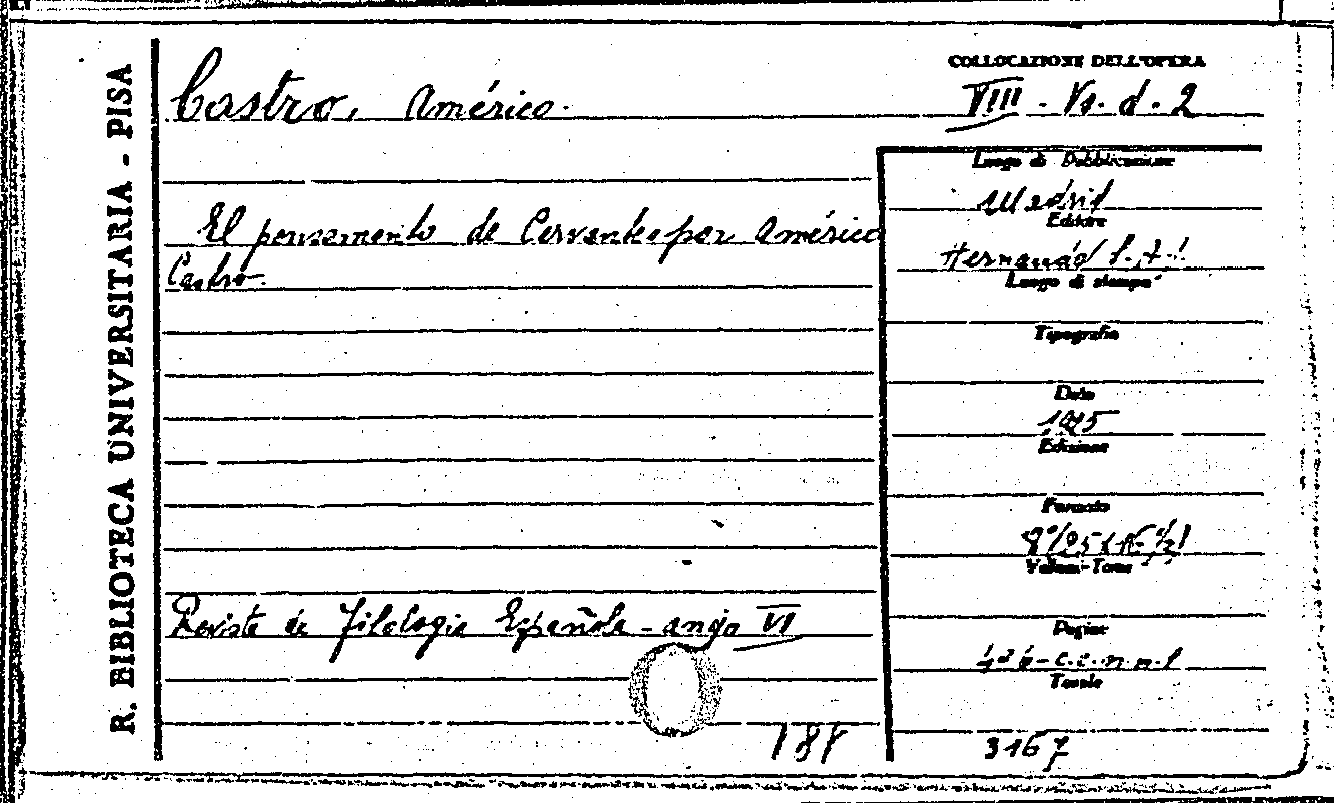 R. BIBLIOTECA UNIVERSITARIA - PISA
Castro, Américo.
COLLOCAZIONE DELL'OPERA
VIII - d. 2
El pensamento de Cervantes por Américo
Castro.
Revista de Filologia Española - anjo VI
188
Luogo di Pubblicazione
Madrid
Editore
Hernando S. A.
Luogo di stampa
Tipografia
Data
1925
Edizione
Formato
8°
Volumi-Tomi
Pagine
406
Tavole
3167